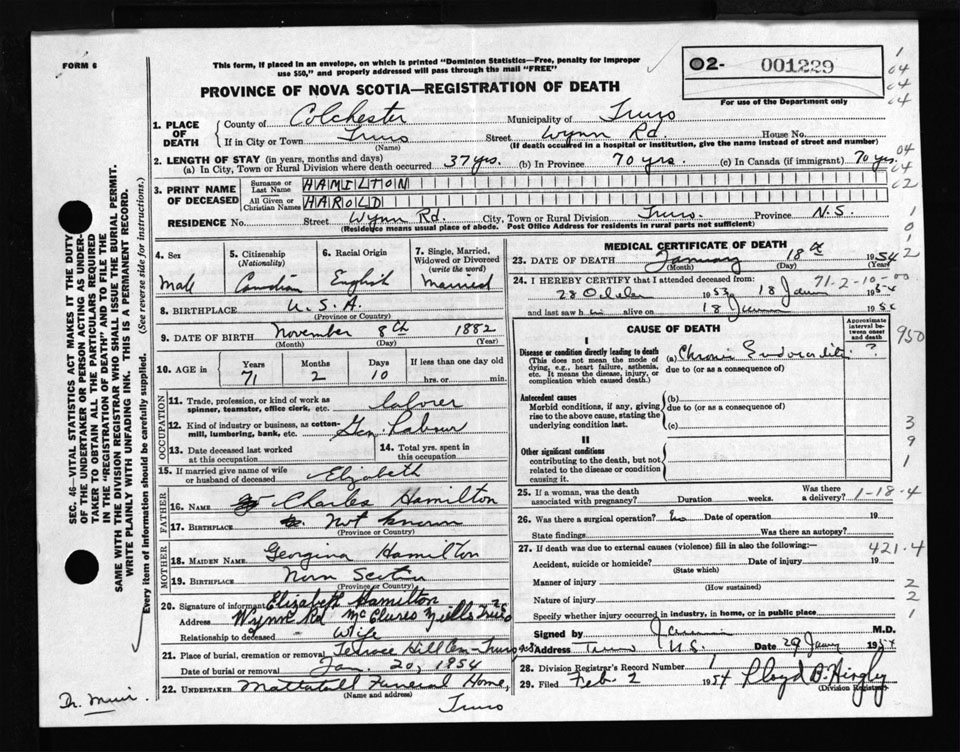 FORM 6
This form, if placed in an envelope, on which is printed "Dominion Statistics—Free, penalty for improper
use $50," and properly addressed will pass through the mail "FREE"
02- 001229
For use of the Department only
PROVINCE OF NOVA SCOTIA—REGISTRATION OF DEATH
1. PLACE OF DEATH
County of Colchester Municipality of Truro
If in City or Town Truro Street Wynn Rd. House No.
(Name) (If death occurred in a hospital or institution, give the name instead of street and number)
2. LENGTH OF STAY (in years, months and days)
(a) In City, Town or Rural Division where death occurred 37 yrs. (b) In Province 70 yrs. (c) In Canada (if immigrant) 70 yrs.
3. PRINT NAME OF DECEASED
Surname or Last Name HAMILTON
All Given or Christian Names HAROLD
RESIDENCE No. Street Wynn Rd. City, Town or Rural Division Truro. Province N.S.
(Residence means usual place of abode. Post Office Address for residents in rural parts not sufficient)
4. Sex Male
5. Citizenship (Nationality) Canadian
6. Racial Origin English
7. Single, Married, Widowed or Divorced (write the word) Married
8. BIRTHPLACE U.S.A.
(Province or Country)
9. DATE OF BIRTH November 8th 1882
(Month) (Day) (Year)
10. AGE in Years 71 Months 2 Days 10 If less than one day old hrs. or min.
OCCUPATION
11. Trade, profession, or kind of work as spinner, teamster, office clerk, etc. laborer
12. Kind of industry or business, as cotton-mill, lumbering, bank, etc. Gen. Labour
13. Date deceased last worked at this occupation
14. Total yrs. spent in this occupation
15. If married give name of wife or husband of deceased Elizabeth
FATHER
16. NAME Charles Hamilton
17. BIRTHPLACE Not known
(Province or Country)
MOTHER
18. MAIDEN NAME Georgina Hamilton
19. BIRTHPLACE Nova Scotia
(Province or Country)
20. Signature of informant Elizabeth Hamilton
Address Wynn Rd McClures Mills Truro
Relationship to deceased Wife
21. Place of burial, cremation or removal Terrace Hill Cem - Truro
Date of burial or removal Jan. 20, 1954
22. UNDERTAKER Mattatall Funeral Home,
(Name and address)
Truro
MEDICAL CERTIFICATE OF DEATH
23. DATE OF DEATH January 18th 1954
(Month) (Day) (Year)
24. I HEREBY CERTIFY that I attended deceased from:
1953 18 Jan 1954
and last saw h alive on 18 19
71-2-10
CAUSE OF DEATH
Approximate interval between onset and death
I
Disease or condition directly leading to death (a) Chronic Endocarditis ?
(This does not mean the mode of dying, e.g., heart failure, asthenia, etc. It means the disease, injury, or complication which caused death.)
due to (or as a consequence of)
Antecedent causes
Morbid conditions, if any, giving rise to the above cause, stating the underlying condition last.
(b)
due to (or as a consequence of)
(c)
II
Other significant conditions
contributing to the death, but not related to the disease or condition causing it.
25. If a woman, was the death associated with pregnancy? Duration weeks. Was there a delivery? 1-18-4
26. Was there a surgical operation? No Date of operation 19
State findings Was there an autopsy?
27. If death was due to external causes (violence) fill in also the following: 421.4
Accident, suicide or homicide? Date of injury 19
(State which)
Manner of injury
(How sustained)
Nature of injury
Specify whether injury occurred in industry, in home, or in public place
Signed by M.D.
Address Truro N.S. Date 29 1954
28. Division Registrar's Record Number 1
29. Filed Feb. 2 1954
(Division Registrar)
SEC. 46—VITAL STATISTICS ACT MAKES IT THE DUTY
OF THE UNDERTAKER OR PERSON ACTING AS UNDER-
TAKER TO OBTAIN ALL THE PARTICULARS REQUIRED
IN THE "REGISTRATION OF DEATH" AND TO FILE THE
SAME WITH THE DIVISION REGISTRAR WHO SHALL ISSUE THE BURIAL PERMIT.
WRITE PLAINLY WITH UNFADING INK. THIS IS A PERMANENT RECORD.
Every item of information should be carefully supplied. (See reverse side for instructions.)
Dr. Muir.
1
04
04
04
04
04
02
1
0
1
2
950
3
9
1
2
2
1